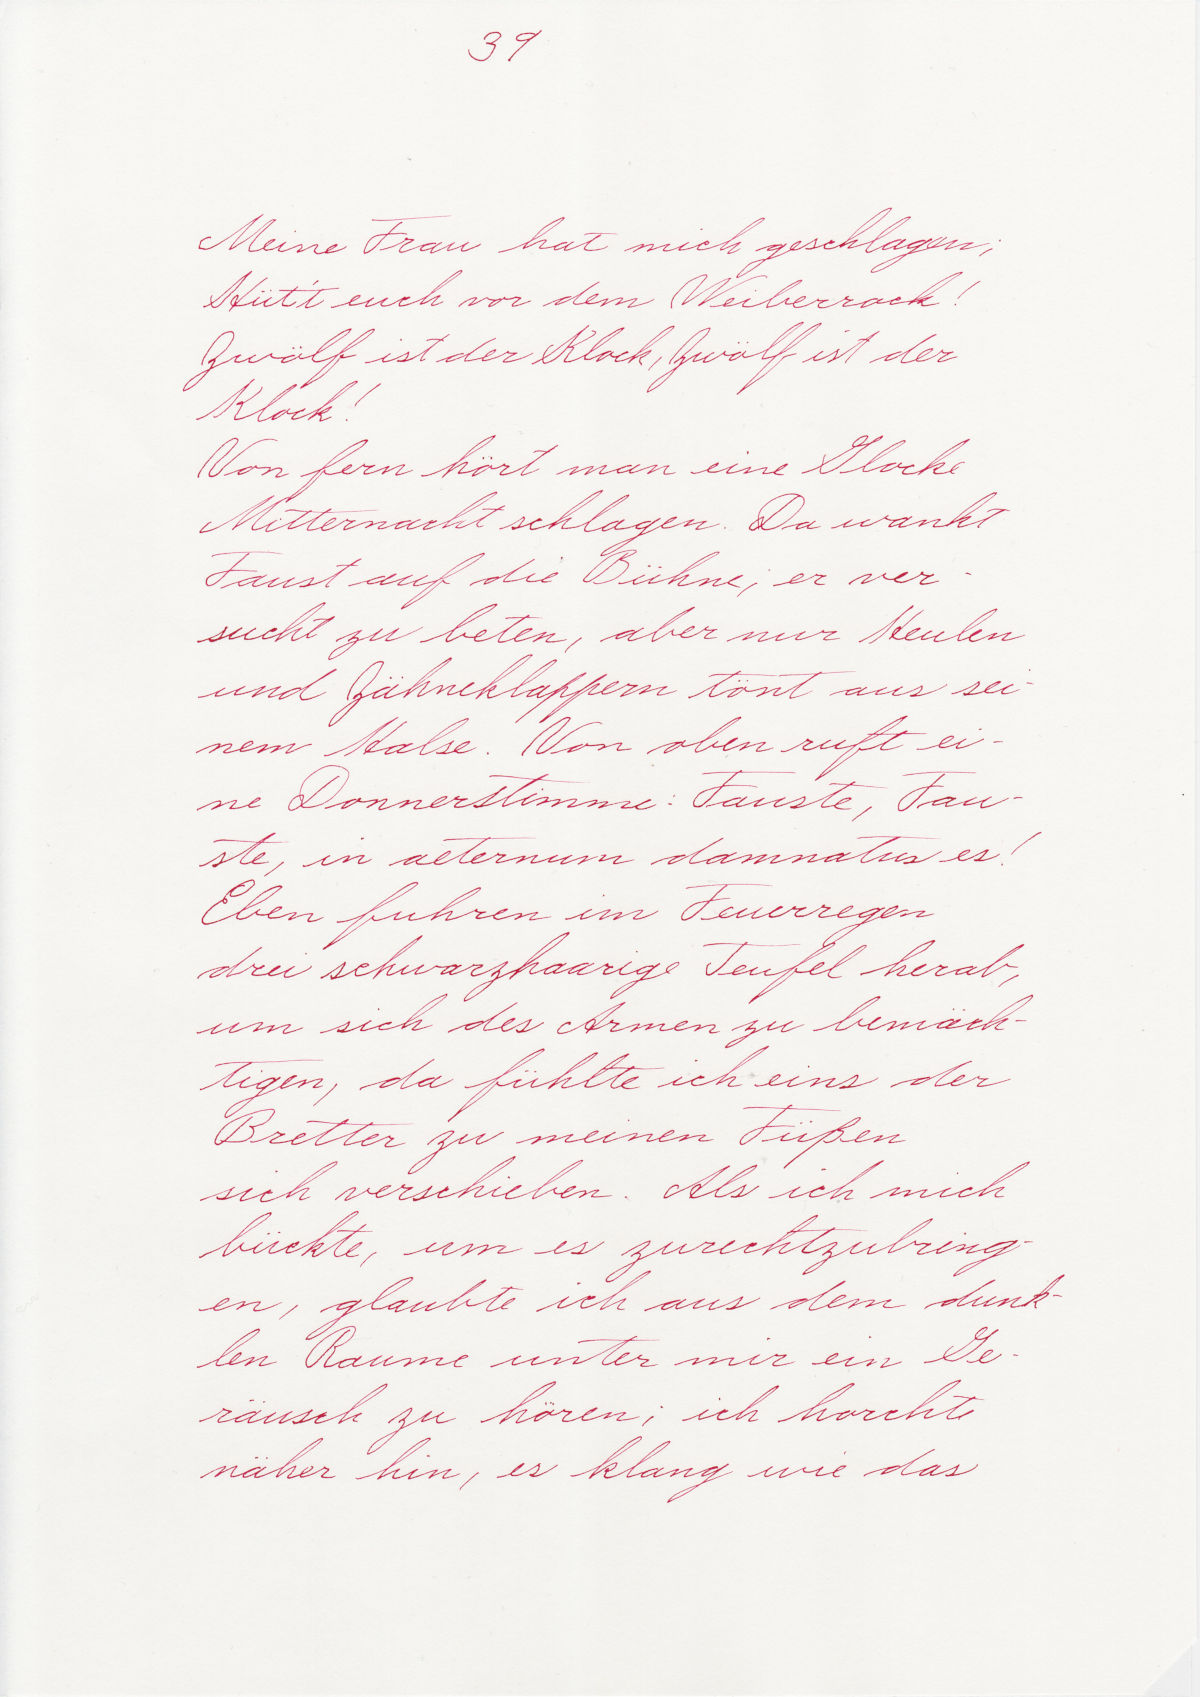 39
Meine Frau hat mich geschlagen;
Hüt't euch vor dem Weiberrock!
Zwölf ist der Klock, Zwölf ist der
Klock!
Von fern hört man eine Glocke
Mitternacht schlagen. Da wankt
Faust auf die Bühne; er ver-
sucht zu beten, aber nur Heulen
und Zähneklappern tönt aus sei-
nem Halse. Von oben ruft ei-
ne Donnerstimme: Fauste, Fau-
ste, in aeternum damnatus es!
Eben fuhren im Feuerregen
drei schwarzhaarige Teufel herab,
um sich des Armen zu bemäch-
tigen, da fühlte ich eins der
Bretter zu meinen Füßen
sich verschieben. Als ich mich
bückte, um es zurechtzubring-
en, glaubte ich aus dem dunk-
len Raume unter mir ein Ge-
räusch zu hören; ich horchte
näher hin, es klang wie das